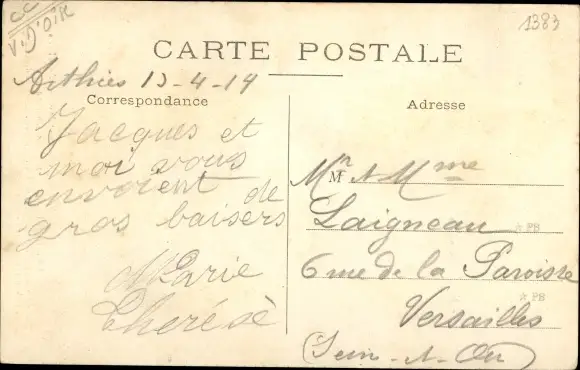 CC
V.D'OIR
1383
CARTE POSTALE
Arthies 13-4-14
Correspondance
Jacques et
moi vous
envoient de
gros baisers
Marie
Therésè
Adresse
M
Mr & Mme
Laigneau
6 rue de la Paroisse
Versailles
(Sein-&-Oise)
PB
PB